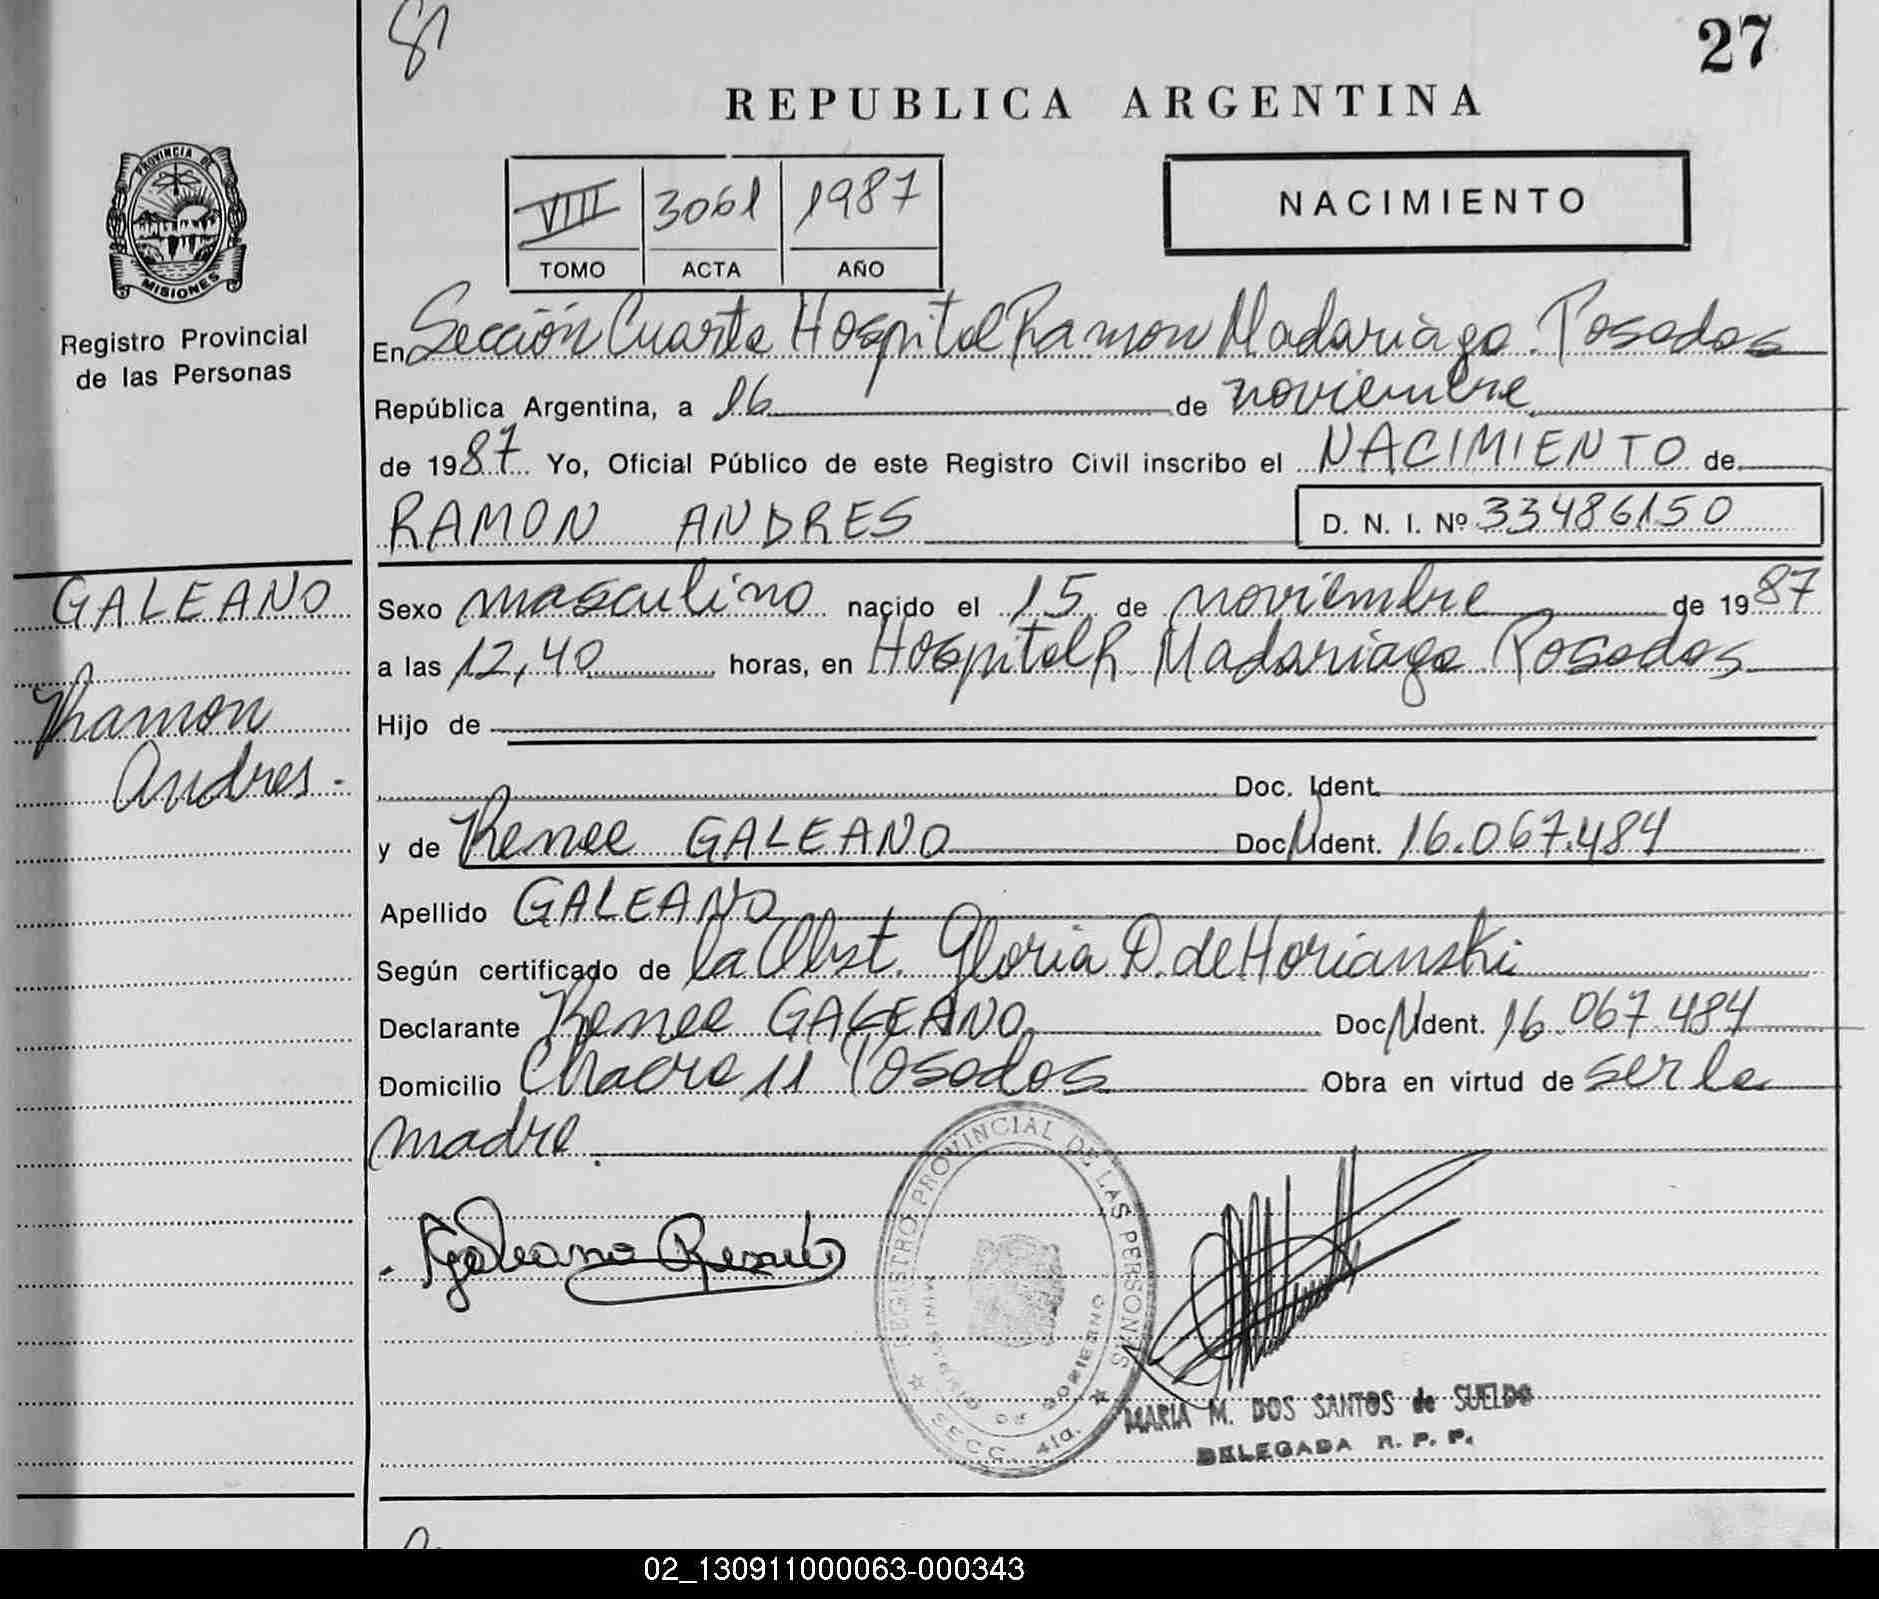 27
REPUBLICA ARGENTINA
PROVINCIA DE
MISIONES
Registro Provincial
de las Personas
VIII 3061 1987
TOMO ACTA AÑO
NACIMIENTO
En Sección Cuarta Hospital Ramon Madariaga. Posadas
República Argentina, a 16 de noviembre
de 1987 Yo, Oficial Público de este Registro Civil inscribo el NACIMIENTO de
RAMON ANDRES D. N. I. Nº 33486150
GALEANO
Ramon
Andres.-
Sexo masculino nacido el 15 de noviembre de 1987
a las 12,40 horas, en Hospital R. Madariaga Posadas
Hijo de
Doc. Ident.
y de Renee GALEANO Doc. Ident. 16.067.484
Apellido GALEANO
Según certificado de la Obst. Gloria D. de Horianski
Declarante Renee GALEANO Doc. Ident. 16.067.484
Domicilio Chacra 11 Posadas Obra en virtud de ser la
madre.
Galeano
REGISTRO PROVINCIAL DE LAS PERSONAS
MINISTERIO DE GOBIERNO
SECC. 4ta.
MARIA M. DOS SANTOS de SUELDO
DELEGADA R. P. P.
02_130911000063-000343